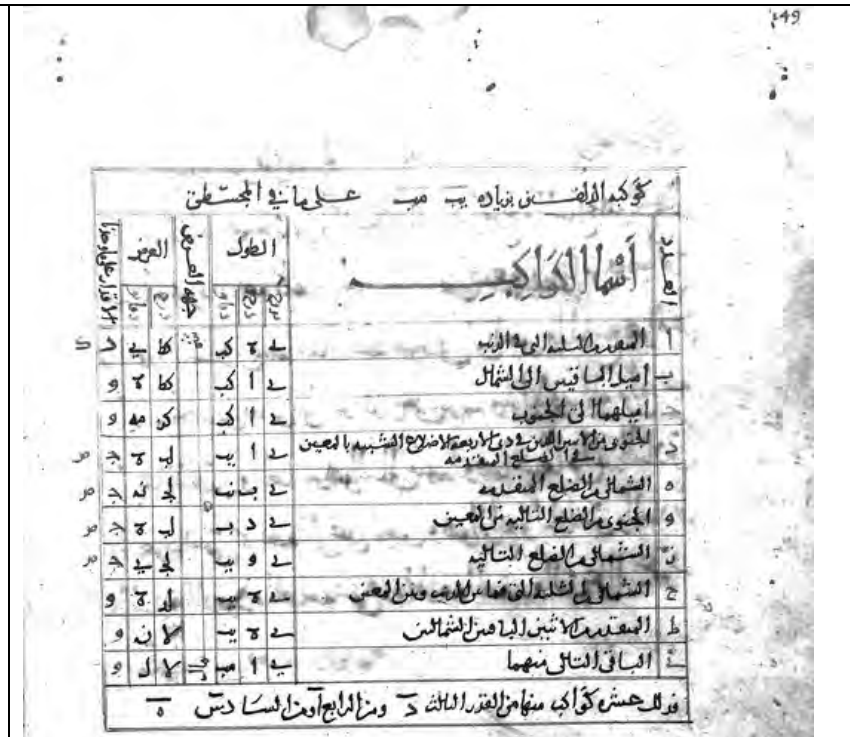 149
كوكبه الدلفين بزياده يب مب على ما في المجسطي
العدد اسماء الكواكب الطول جهه العرض العرض
بروج درج دقايق درج دقايق
ا المتقدم من الثلثه التي في الذنب ي ه كب كط ي د
ب اميل الباقيين الى الشمال ي ا كب كط ه و
ج اميلهما الى الجنوب ي ا كب كز مه و
د الجنوبي من الاثنين اللذين في ذي الاربعه الاضلاع الشبيه بالمعين في الضلع المتقدمه ي ا يب لب ه ج
ه الشمالي من الضلع المتقدمه ي ب نب لج ن ج
و الجنوبي من الضلع التاليه من المعين ي د ب لب ه ج
ز الشمالي من الضلع التاليه ي و يب لج ي ج
ح الشمالي من الثلثه التي فيما بين الذنب وبين المعين ي ه يب لد ه و
ط المتقدم من الاثنين الباقيين الشماليين ي ه يب لا ن و
ي الباقي التالي منهما ي ا مب لا ل و
فذلك عشره كواكب منها من القدر الثالث د ومن الرابع ا ومن السادس ه